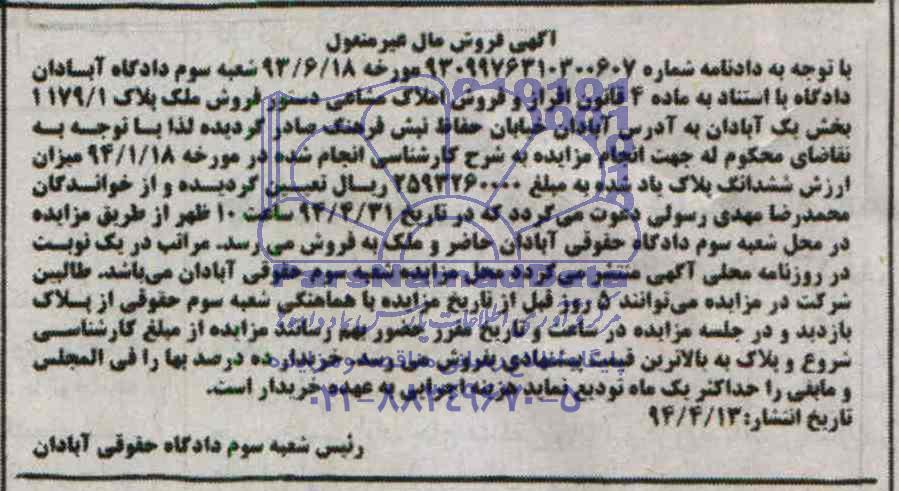 آگهی فروش مال غیرمنقول
با توجه به دادنامه شماره ۹۳۰۹۹۷۶۳۱۰۳۰۰۶۰۷ مورخه ۹۳/۶/۱۸ شعبه سوم دادگاه آبادان
دادگاه با استناد به ماده ۴ قانون افراز و فروش املاک مشاعی دستور فروش ملک پلاک ۱۱۷۹/۱
بخش یک آبادان به آدرس آبادان خیابان حفاظ نبش فرهنگ صادر گردیده لذا با توجه به
تقاضای محکوم له جهت انجام مزایده به شرح کارشناسی انجام شده در مورخه ۹۴/۱/۱۸ میزان
ارزش ششدانگ پلاک یاد شده به مبلغ ۲۵۹۳۲۶۰۰۰۰ ریال تعیین گردیده و از خواندگان
محمدرضا مهدی رسولی دعوت می‌گردد که در تاریخ ۹۴/۴/۳۱ ساعت ۱۰ ظهر از طریق مزایده
در محل شعبه سوم دادگاه حقوقی آبادان حاضر و ملک به فروش می‌رسد. مراتب در یک نوبت
در روزنامه محلی آگهی منتشر می‌گردد محل مزایده شعبه سوم حقوقی آبادان می‌باشد. طالبین
شرکت در مزایده می‌توانند ۵ روز قبل از تاریخ مزایده با هماهنگی شعبه سوم حقوقی از پلاک
بازدید و در جلسه مزایده در ساعت و تاریخ مقرر حضور بهم رسانند مزایده از مبلغ کارشناسی
شروع و پلاک به بالاترین قیمت پیشنهادی بفروش می‌رسد، خریدار ده درصد بها را فی المجلس
و مابقی را حداکثر یک ماه تودیع نماید هزینه اجرایی به عهده خریدار است.
تاریخ انتشار: ۹۴/۴/۱۳
رئیس شعبه سوم دادگاه حقوقی آبادان
ParsNamadData
۰۲۱-۸۸۳۴۹۶۷۰-۵